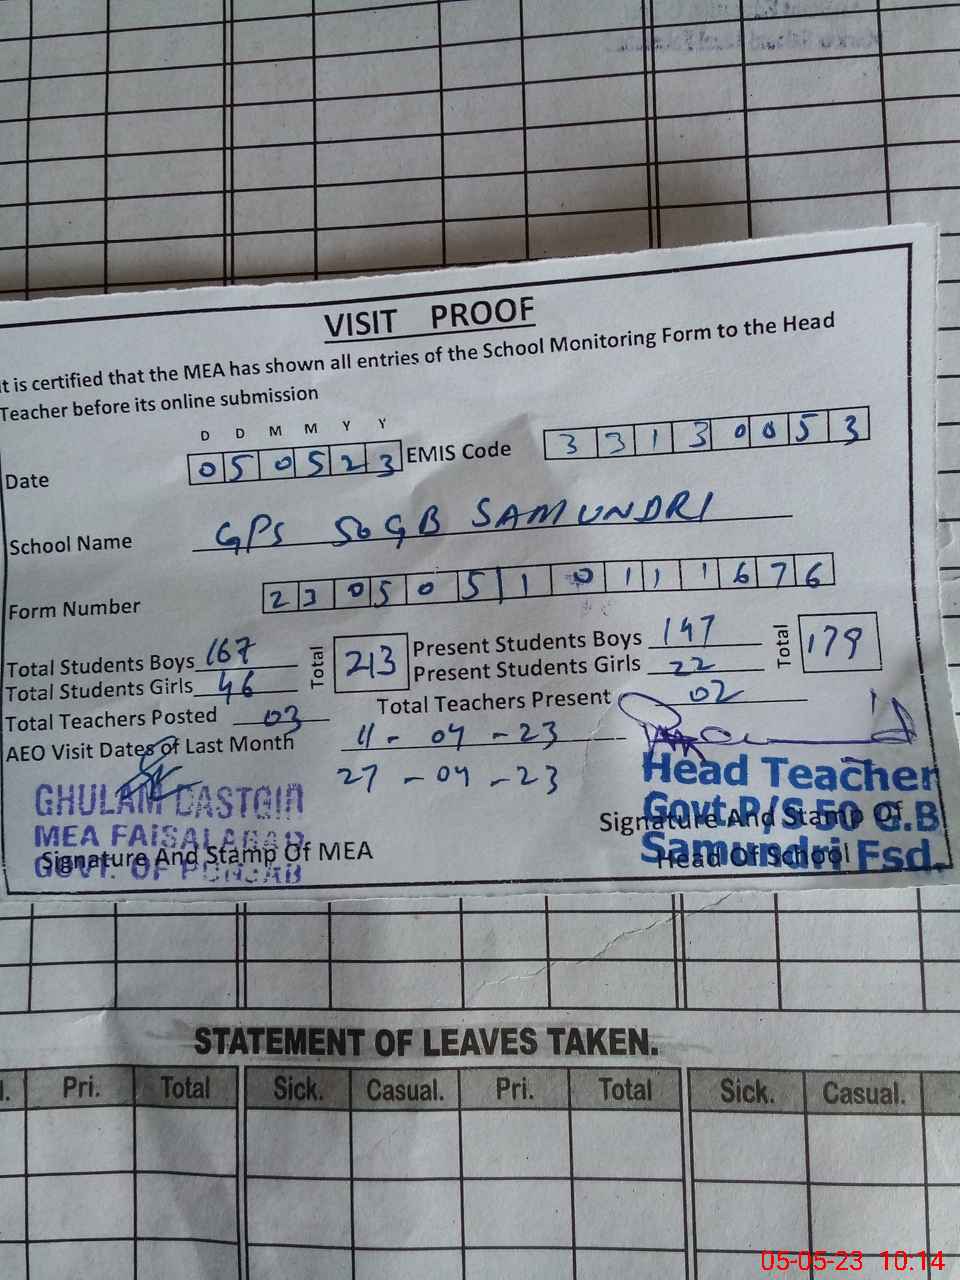 VISIT PROOF
It is certified that the MEA has shown all entries of the School Monitoring Form to the Head
Teacher before its online submission
D D M M Y Y
Date 050523 EMIS Code 33130053
School Name GPS 50 GB SAMUNDRI
Form Number 230505101111676
Total Students Boys 167 Total 213 Present Students Boys 147 Total 179
Total Students Girls 46 Present Students Girls 22
Total Teachers Posted 03 Total Teachers Present 02
AEO Visit Dates of Last Month 11-04-23
27-04-23
GHULAM DASTGIR
MEA FAISALABAD
GOVT. OF PUNJAB
Signature And Stamp Of MEA
Head Teacher
Govt.P/S 50 G.B
Samundri Fsd.
Signature And Stamp Of
Head Of School
STATEMENT OF LEAVES TAKEN.
Pri. Total Sick. Casual. Pri. Total Sick. Casual.
05-05-23 10:14